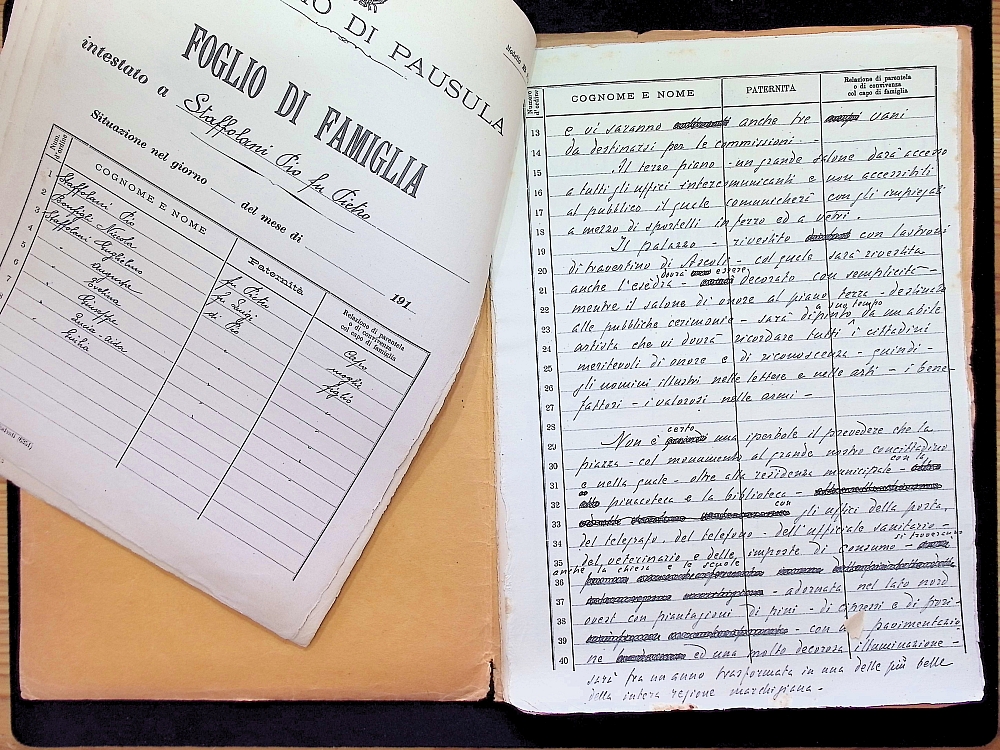 IO DI PAUSULA
Modulo N.
FOGLIO DI FAMIGLIA
intestato a Staffolani Pio fu Pietro
Situazione nel giorno del mese di 191
Numero d'ordine
COGNOME E NOME
Paternità
Relazione di parentela o di convivenza col capo di famiglia
1 Staffolani Pio fu Pietro Capo
2 Nicola fu Luigi moglie
3 Staffolani Guglielmo di Pio figlio
4
5 Evelina
6 Giuseppe
7
Numero d'ordine
COGNOME E NOME
PATERNITÀ
Relazione di parentela o di convivenza col capo di famiglia
13 e vi saranno anche tre vani
14 da destinarsi per le commissioni.
15 Il terzo piano - un grande salone darà accesso
16 a tutti gli uffici intercomunicanti e non accessibili
17 al pubblico il quale comunicherà con gli impiegati
18 a mezzo di sportelli in ferro ed a vetri.
19 Il palazzo - rivestito con lastroni
20 di travertino di Ascoli - col quale sarà rivestita
dovrà essere
21 anche l'esedra - decorato con semplicità -
22 mentre il salone di onore al piano terra - destinato
a suo tempo
23 alle pubbliche cerimonie - sarà dipinto da un abile
24 artista che vi dovrà ricordare tutti i cittadini
25 meritevoli di onore e di riconoscenza - quindi -
26 gli uomini illustri nelle lettere e nelle arti - i bene-
27 fattori - i valorosi nelle armi -
28
certo
29 Non è una iperbole il prevedere che la
30 piazza - col monumento al grande nostro concittadino
con la
31 e nella quale - oltre alla residenza municipale -
32 pinacoteca e la biblioteca -
con
33 gli uffici della posta,
34 del telegrafo, del telefono - dell'ufficiale sanitario -
si troveranno
35 del veterinario e delle imposte di consumo -
anche la chiesa e le scuole
36
37 - adornata nel lato nord
38 ovest con piantagioni di pini - di cipressi e di fiori -
39 - con a pavimentazio
40 ne ed una molto decorosa illuminazione -
sarà fra un anno trasformata in una delle più belle
della intera regione marchigiana -